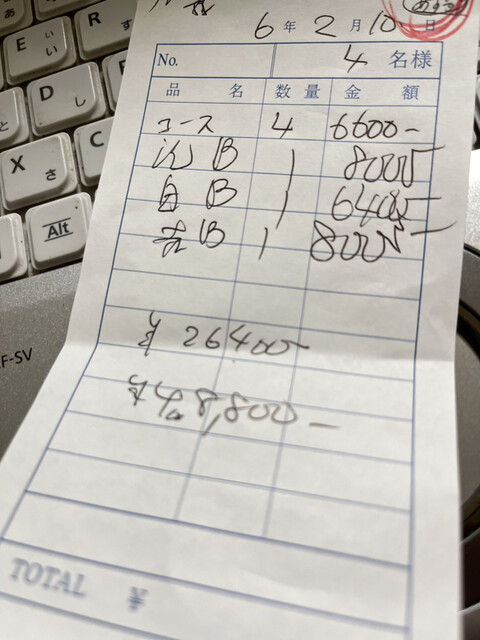 6年2月10日
No. 4名様
品名 数量 金額
コース 4 6600-
泡B 1 8000-
白B 1 6400-
赤B 1 8000-
¥26400-
¥48,800-
TOTAL ¥
E い ぃ
R す
D し
X さ
C
Alt
F-SV
と